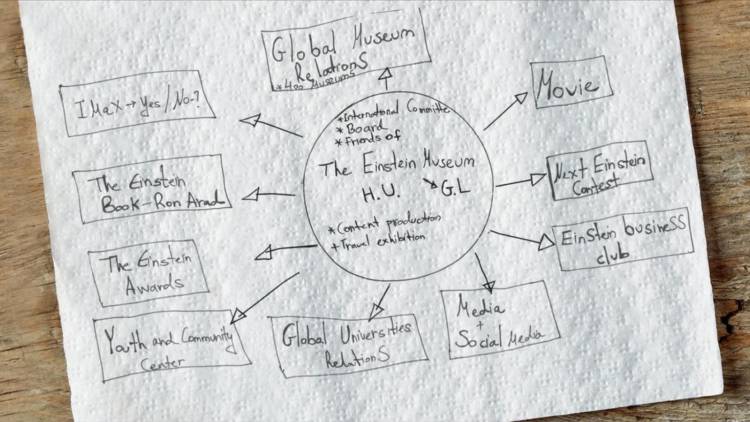 Global Museum
RelationS
*400 Museums
IMax→Yes/No-?
Movie
*International Committe
* Board
* Friends of
The Einstein Museum
H.U. → G.L
*Content production
+Travel exhibition
The Einstein
Book-Ron Arad
Next Einstein
Contest
Einstein business
club
The Einstein
Awards
Media
+
Social Media
Youth and Community
Center
Global Universities
RelationS